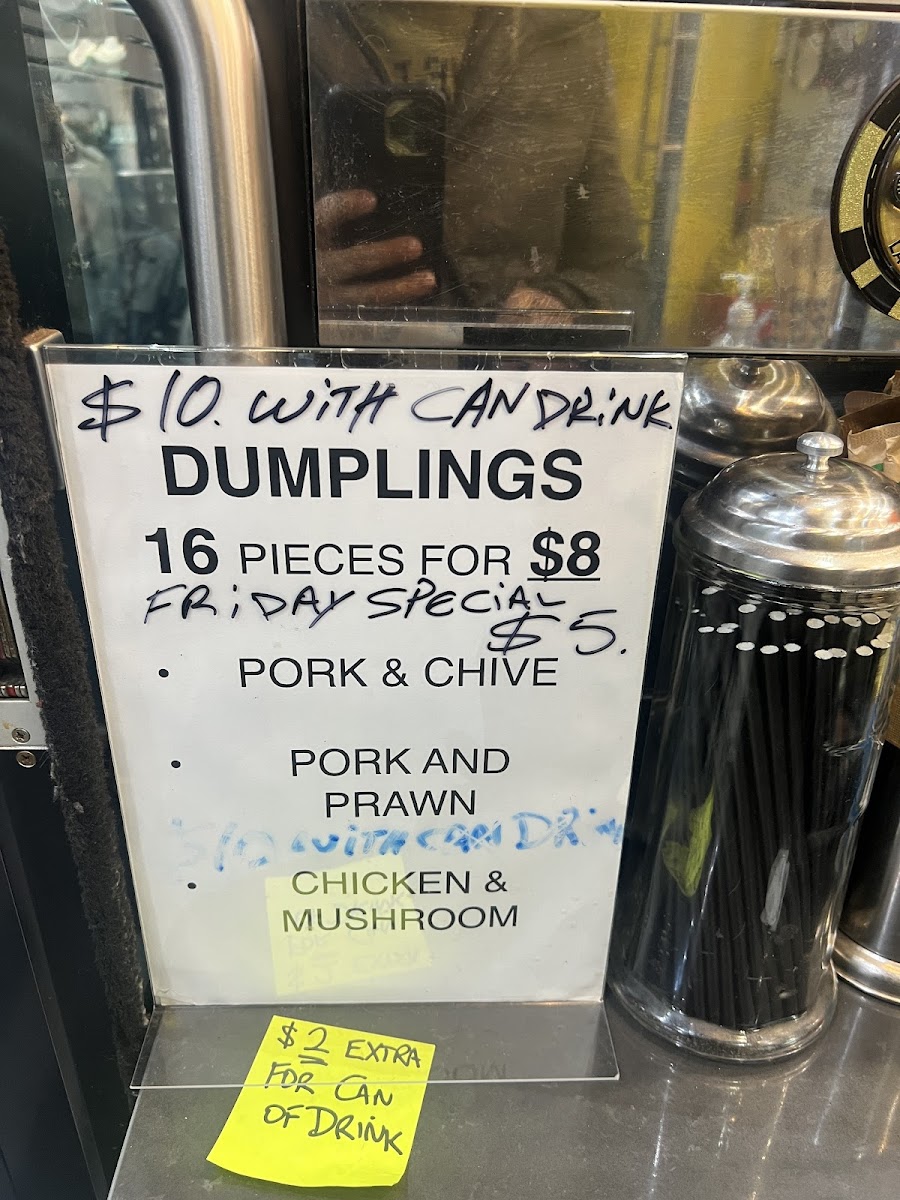 $10. WITH CAN DRINK
DUMPLINGS
16 PIECES FOR $8
FRIDAY SPECIAL
$5.
• PORK & CHIVE
• PORK AND
PRAWN
$10 WITH CAN DRIN
• CHICKEN &
MUSHROOM
$2 EXTRA
FOR CAN
OF DRINK